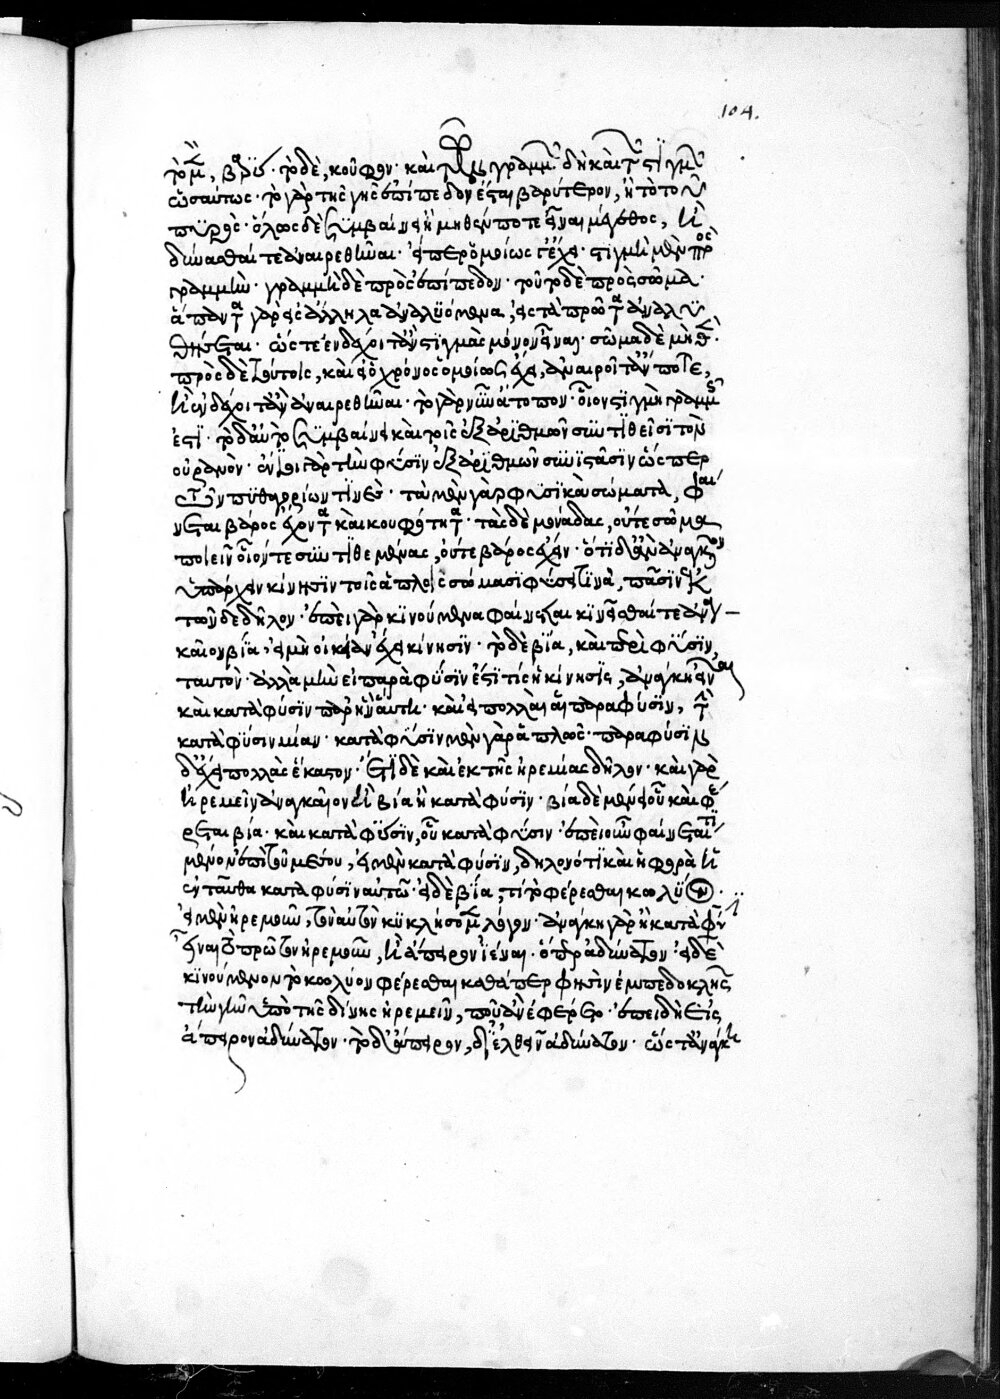 τὸ μὲν, βαρὺ· τὸ δὲ, κοῦφον· καὶ τὰς γραμμὰς δὴ καὶ τὰς στιγμὰς
ὡσαύτως· τὸ γὰρ τῆς γῆς ἐπίπεδον ἔσται βαρύτερον, ἢ τὸ τοῦ
πυρός· ὅλως δὲ συμβαίνει ἢ μηθέν ποτε εἶναι μέγεθος, ἢ
δύνασθαί τε ἀναιρεθῆναι· εἴπερ ὁμοίως ἔχει· στιγμὴ μὲν πρὸς
γραμμὴν· γραμμὴ δὲ πρὸς ἐπίπεδον· τοῦτο δὲ πρὸς σῶμα·
ἅπαντα γὰρ εἰς ἄλληλα ἀναλυόμενα, εἰς τὰ πρῶτα ἀναλυ
θήσεται· ὥστε ἐνδέχοιτ' ἂν στιγμὰς μόνον εἶναι· σῶμα δὲ μηθέν·
πρὸς δὲ τούτοις, καὶ εἰ ὁ χρόνος ὁμοίως ἔχει, ἀναιροῖτ' ἄν ποτε,
ἢ ἐνδέχοιτ' ἂν ἀναιρεθῆναι· τὸ γὰρ νῦν ἄτομον· οἷον στιγμὴ γραμμῆς
ἐστι· τὸ δ' αὐτὸ συμβαίνει καὶ τοῖς ἐξ ἀριθμῶν συντιθεῖσι τὸν
οὐρανὸν· ἔνιοι γὰρ τὴν φύσιν ἐξ ἀριθμῶν συνιστᾶσιν ὥσπερ
τῶν πυθαγορίων τινές· τὰ μὲν γὰρ φυσικὰ σώματα, φαί
νεται βάρος ἔχοντα καὶ κουφότητα· τὰς δὲ μονάδας, οὔτε σῶμα
ποιεῖν οἷόν τε συντιθεμένας, οὔτε βάρος ἔχειν· ὅτι δ' ἀναγκαῖον
ὑπάρχειν κίνησιν τοῖς ἁπλοῖς σώμασι φύσει τινὰ, πᾶσιν ἐκ
τῶνδε δῆλον· ἐπεὶ γὰρ κινούμενα φαίνεται κινεῖσθαί τε ἀναγ
καῖον βίᾳ· εἰ μὴ οἰκείαν ἔχει κίνησιν· τὸ δὲ βίᾳ, καὶ παρὰ φύσιν,
ταυτόν· ἀλλὰ μὴν εἰ παρὰ φύσιν ἐστί τις ἡ κίνησις, ἀνάγκη εἶναι
καὶ κατὰ φύσιν παρ' ἣν αὕτη· καὶ εἰ πολλαὶ αἱ παρὰ φύσιν, τὴν
κατὰ φύσιν μίαν· κατὰ φύσιν μὲν γὰρ ἁπλῶς· παρὰ φύσιν
δ' ἔχει πολλὰς ἕκαστον· ἔτι δὲ καὶ ἐκ τῆς ἠρεμίας δῆλον· καὶ γὰρ
ἠρεμεῖν ἀναγκαῖον ἢ βίᾳ ἢ κατὰ φύσιν· βίᾳ δὲ μένει οὗ καὶ φέ
ρεται βίᾳ· καὶ κατὰ φύσιν, οὗ κατὰ φύσιν· ἐπεὶ οὖν φαίνεταί τι
μένον ἐπὶ τοῦ μέσου, εἰ μὲν κατὰ φύσιν, δηλονότι καὶ ἡ φορὰ ἡ
ἐνταῦθα κατὰ φύσιν αὐτῷ· εἰ δὲ βίᾳ, τί τὸ φέρεσθαι κωλῦον·
εἰ μὲν ἠρεμοῦν, τὸν αὐτὸν κυκλήσομεν λόγον· ἀνάγκη γὰρ ἢ κατὰ φύσιν
εἶναι τὸ πρῶτον ἠρεμοῦν, ἢ εἰς ἄπειρον ἰέναι· ὅπερ ἀδύνατον· εἰ δὲ
κινούμενον τὸ κωλύον φέρεσθαι καθάπερ φησὶν ἐμπεδοκλῆς
τὴν γῆν ὑπὸ τῆς δίνης ἠρεμεῖν, ποῦ ἂν ἐφέρετο· ἐπειδὴ εἰς
ἄπειρον ἀδύνατον· τὸ δ' ἄπειρον, διελθεῖν ἀδύνατον· ὥστ' ἀνάγκη